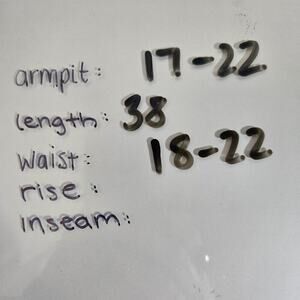 armpit: 17-22
length: 38
waist: 18-22
rise:
inseam: